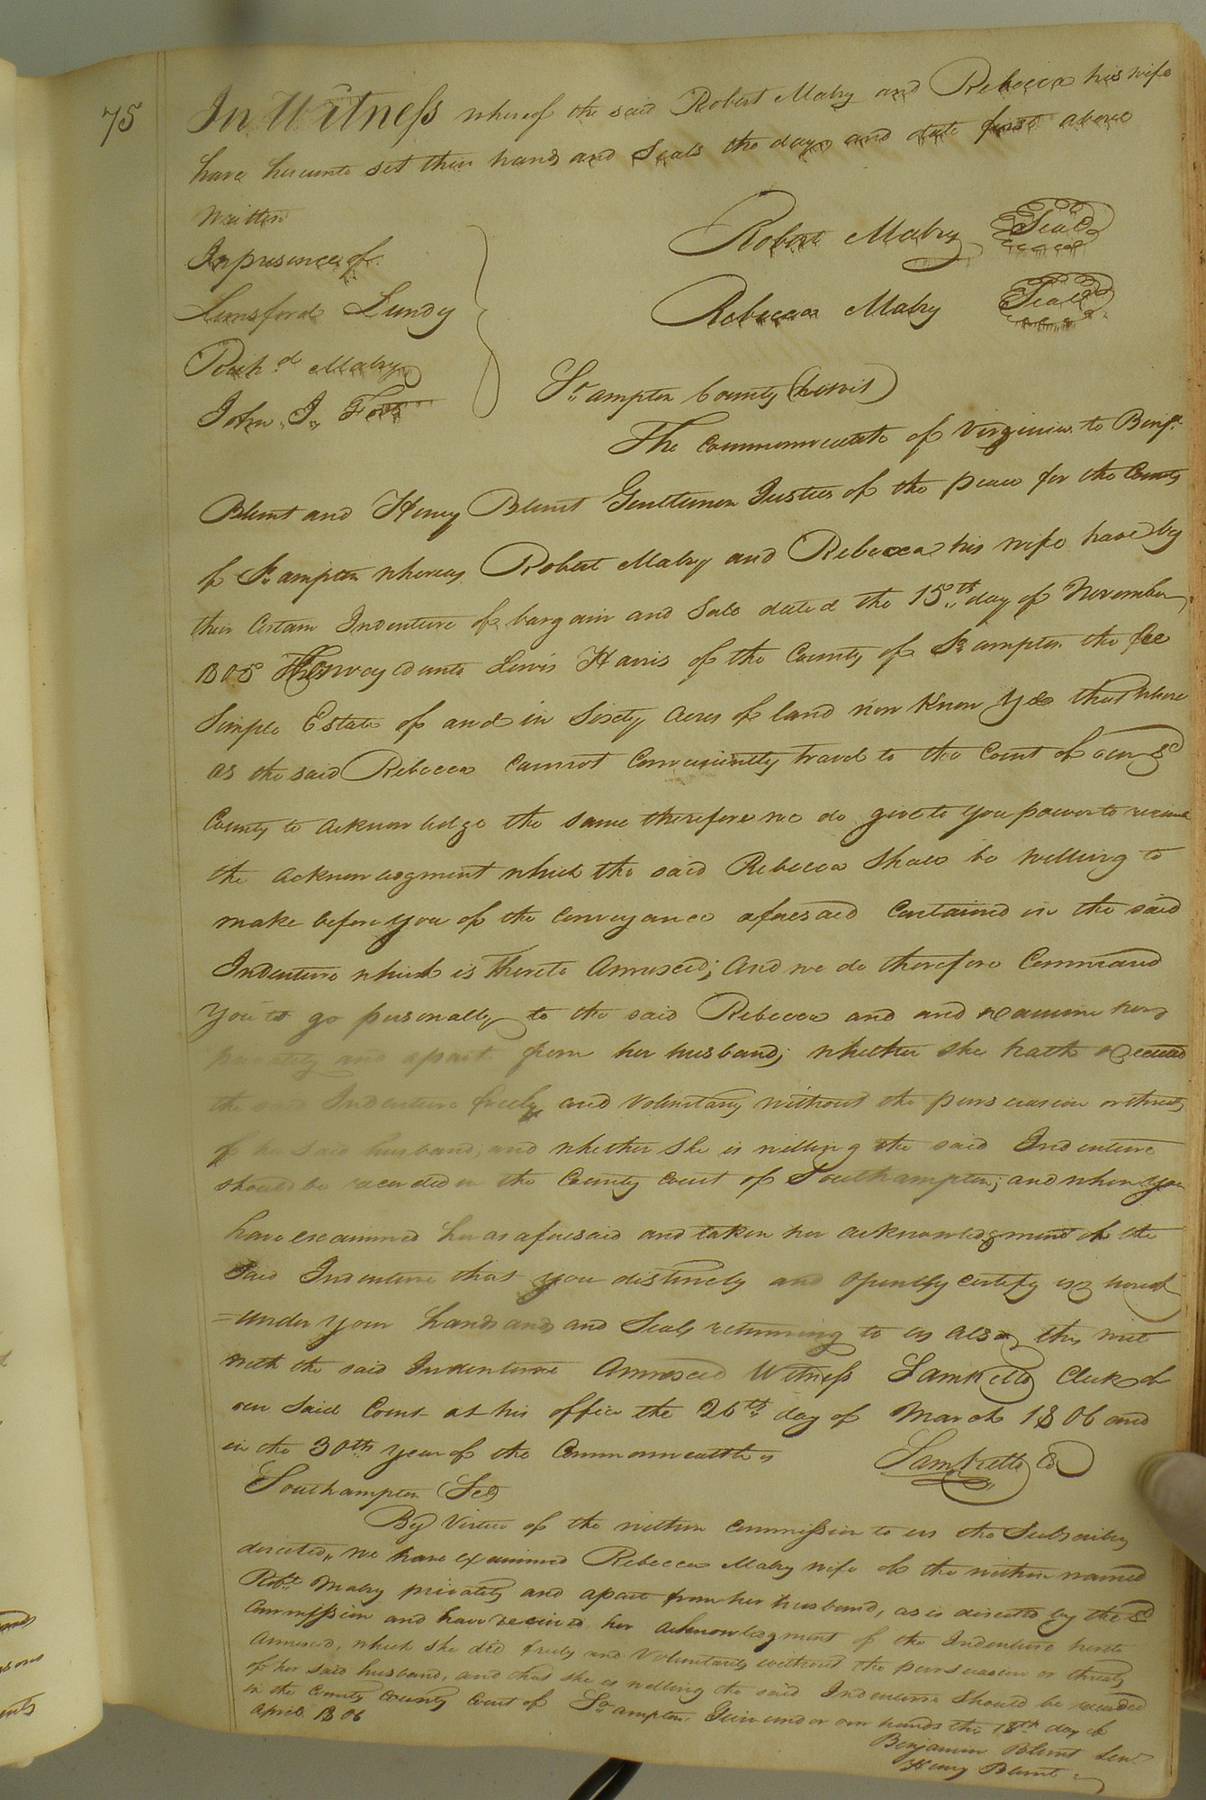 75
In Witness whereof the said Robert Mabry and Rebecca his wife
have hereunto set their hands and Seals the day and date first above
written
In presence of
Lunsford Lundy
Richd Mabry
John J. Fort
Robert Mabry Seal
Rebecca Mabry Seal
So.ampton County (towit)
The Commonwealth of Virginia to Benja.
Blunt and Henry Blunt Gentlemen Justices of the peace for the County
of So.ampton whereas Robert Mabry and Rebecca his wife have by
their Certain Indenture of bargain and Sale dated the 15th day of November
1805 Conveyed unto Lewis Harris of the County of So.ampton the fee
Simple Estate of and in Sixty Acres of land now Know Yee that where
as the said Rebecca Cannot Conveniently travel to the Court of our sd
County to acknowledge the same therefore we do give to you power to receive
the acknowledgment which the said Rebecca Shall be willing to
make before you of the Conveyance aforesaid Contained in the said
Indenture which is thereto Annexed; And we do therefore Command
You to go personally to the said Rebecca and and examine her
privately and apart from her husband; whether she hath executed
the said Indenture freely and Voluntary without the perswasion or threats
of her said husband, and whether she is willing the said Indenture
should be recorded in the County Court of Southampton; and when you
have examined her as aforesaid and taken her acknowledgment of the
said Indenture that you distinctly and openly certify us thereof
=under your hands and and Seals returning to us also this writ
with the said Indenture Annexed Witness Saml Kello Clerk of
our Said Court at his office the 26th day of March 1806 and
in the 30th year of the Commonwealth
Saml Kello Co
Southampton Sct
By Virtue of the within Commission to us the Subscribers
directed, we have examined Rebecca Mabry wife of the within named
Robt. Mabry privately and apart from her husband, as is directed by the sd
Commission and have received her acknowledgment of the Indenture hereto
Annexed, which she did freely and Voluntarily without the perswasion or threats
of her said husband, and that she is willing the said Indenture Should be recorded
in the County County Court of So.ampton. Given under our hands this 18th day of
April 1806
Benjamin Blunt Senr
Henry Blunt